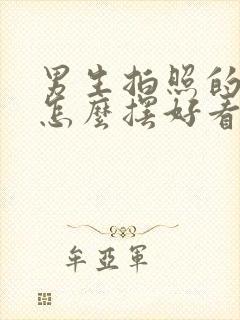 男生拍照的
怎麼擺好看
牟亞軍